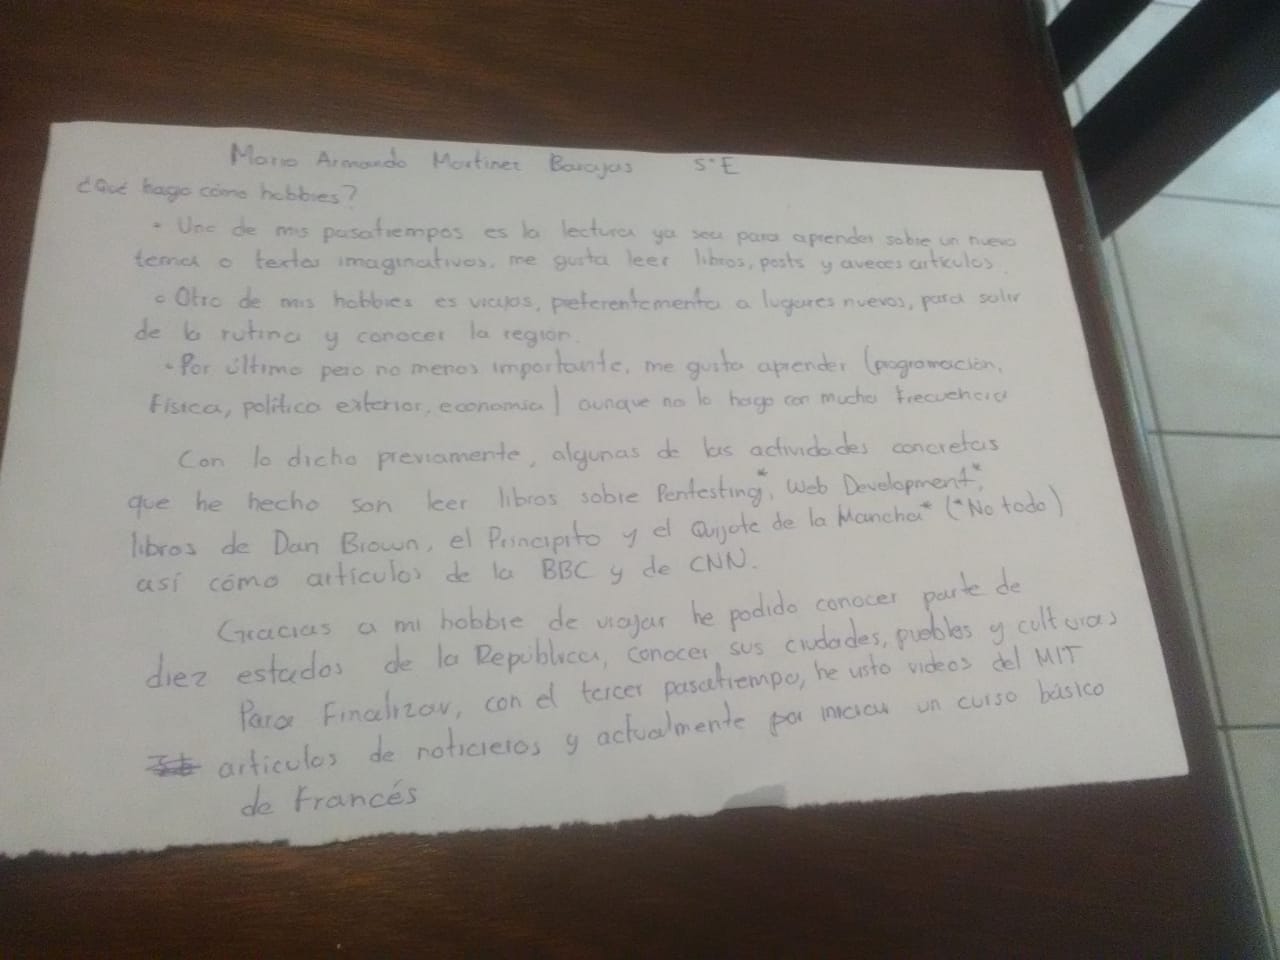 Mario Armando Martinez Barajas 5°E
¿Qué hago cómo hobbies?
• Uno de mis pasatiempos es la lectura ya sea para aprender sobre un nuevo
tema o textos imaginativos, me gusta leer libros, posts y aveces artículos.
• Otro de mis hobbies es viajar, preferentemente a lugares nuevos, para salir
de la rutina y conocer la región.
• Por último pero no menos importante, me gusta aprender (programación,
Física, política exterior, economía) aunque no lo hago con mucha frecuencia
Con lo dicho previamente, algunas de las actividades concretas
que he hecho son leer libros sobre Pentesting*, Web Development*,
libros de Dan Brown, el Principito y el Quijote de la Mancha* (*No todo)
así cómo artículos de la BBC y de CNN.
Gracias a mi hobbie de viajar he podido conocer parte de
diez estados de la República, conocer sus ciudades, pueblos y culturas
Para Finalizar, con el tercer pasatiempo, he visto videos del MIT
articulos de noticieros y actualmente por iniciar un curso básico
de Francés